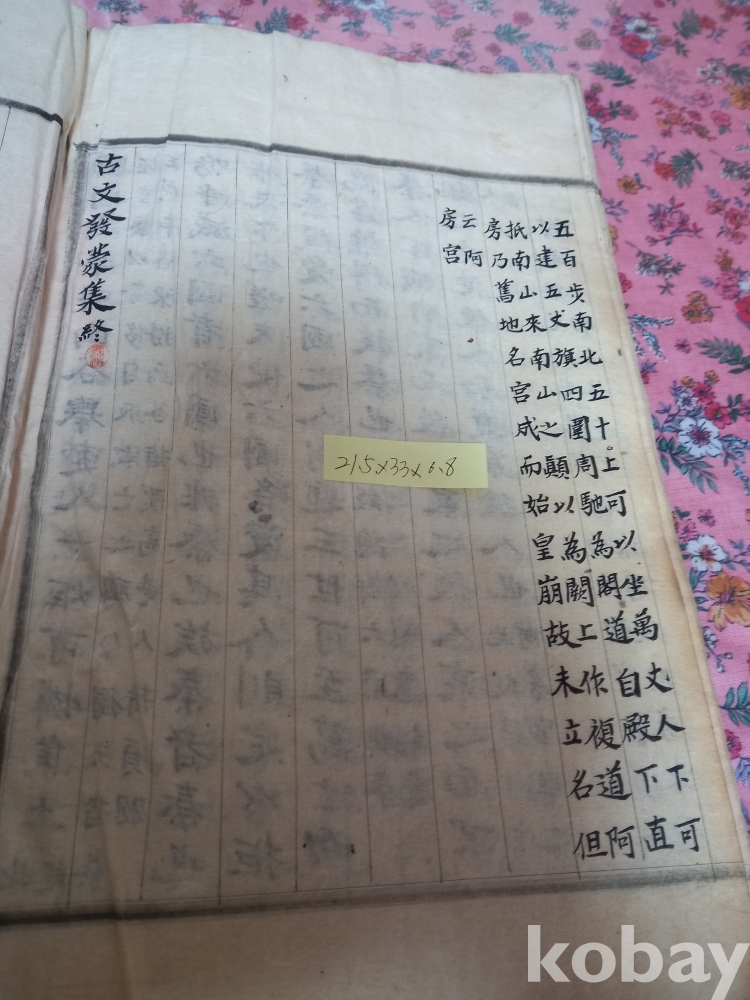 五百步南北五十。上可以坐萬丈人下可
以建五丈旗四圍周馳為閣道自殿下直
抵南山來南山之顚以為闕上作複道阿
房乃舊地名宮成而始皇崩故未立名但
云阿
房宮
古文發蒙集 終
21.5x33x0.8
kobay